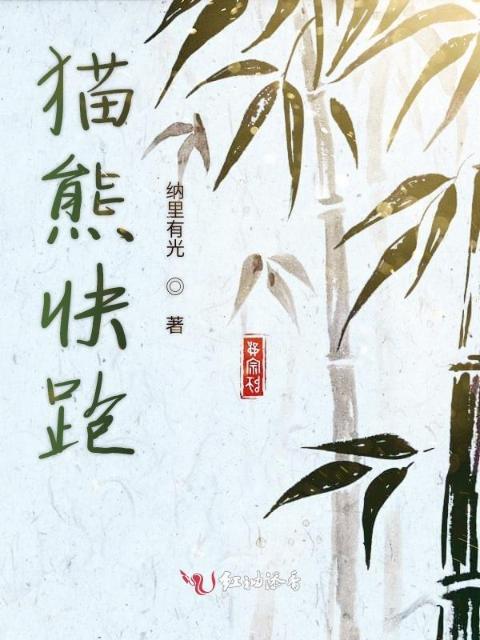 猫熊快跑
纳里有光 ◎ 著
红袖添香